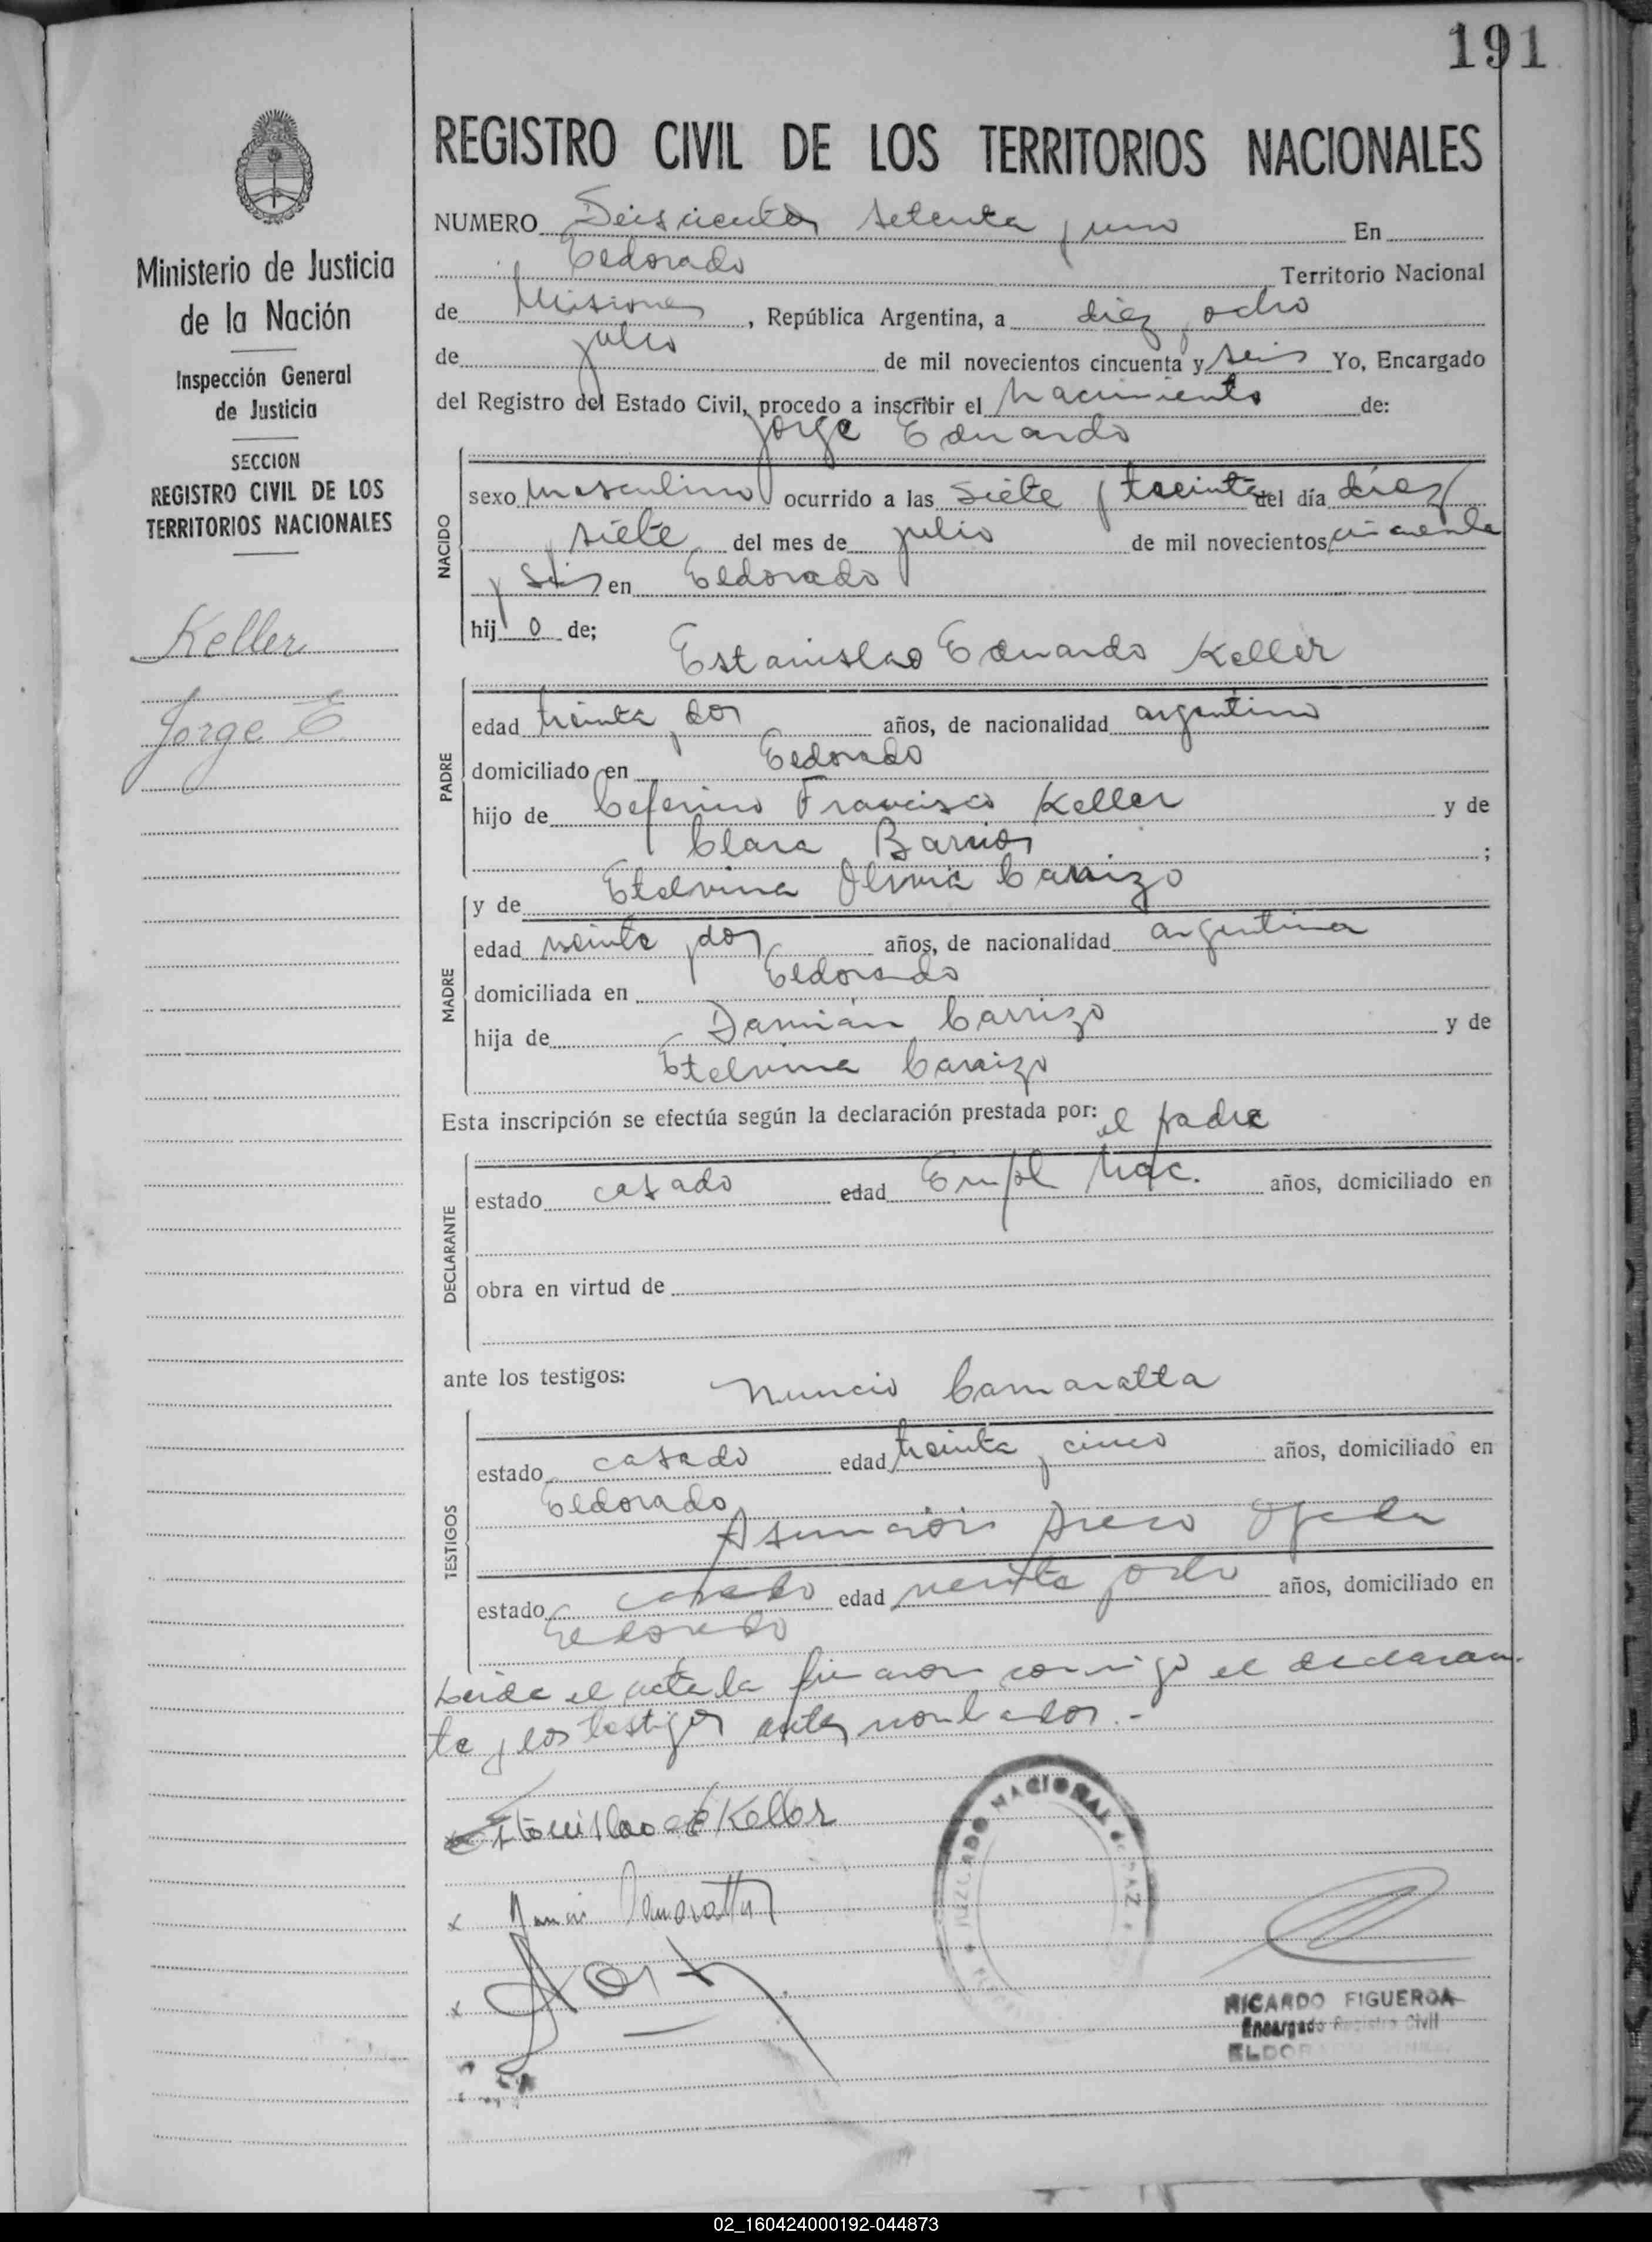 191
REGISTRO CIVIL DE LOS TERRITORIOS NACIONALES
Ministerio de Justicia
de la Nación
Inspección General
de Justicia
SECCION
REGISTRO CIVIL DE LOS
TERRITORIOS NACIONALES
Keller
Jorge E.
NUMERO Seiscientos setenta y uno En
Eldorado Territorio Nacional
de Misiones, República Argentina, a diez y ocho
de julio de mil novecientos cincuenta y seis Yo, Encargado
del Registro del Estado Civil, procedo a inscribir el nacimiento de:
Jorge Eduardo
NACIDO
sexo masculino ocurrido a las siete y treinta del día diez
y siete del mes de julio de mil novecientos cincuenta
y seis en Eldorado
hijo de;
Estanislao Eduardo Keller
PADRE
edad treinta y dos años, de nacionalidad argentino
domiciliado en Eldorado
hijo de Ceferino Francisco Keller y de
Clara Barrios ;
y de Etelvina Carrizo
MADRE
edad veinte y dos años, de nacionalidad argentina
domiciliada en Eldorado
hija de Damián Carrizo y de
Etelvina Carrizo
Esta inscripción se efectúa según la declaración prestada por: el padre
DECLARANTE
estado casado edad Empl Nac. años, domiciliado en
obra en virtud de
ante los testigos: Nuncio Camaratta
TESTIGOS
estado casado edad treinta y cinco años, domiciliado en
Eldorado
Asunción Ojeda
estado casado edad veinte y ocho años, domiciliado en
Eldorado
Leida el acta la firmaron conmigo el declaran-
te y los testigos antes nombrados.-
Estanislao E Keller
x Nuncio Camaratta
x
JUZGADO NACIONAL de PAZ
RICARDO FIGUEROA
Encargado Registro Civil
ELDORADO
02_160424000192-044873